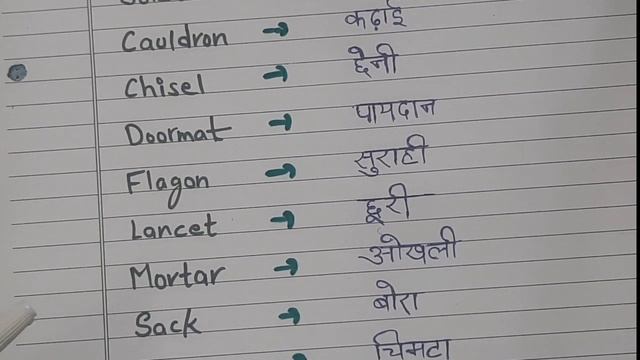 Cauldron → कढ़ाई
Chisel → छेनी
Doormat → पायदान
Flagon → सुराही
Lancet → छूरी
Mortar → ओखली
Sack → बोरा
चिमटा